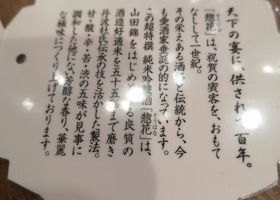 天下の宴に、供されて百年。
「惣花」は、祝賀の賓客を、おもて
なしして一世紀。
その栄えある酒、と伝統から、今
も愛酒家垂涎の的になっています。
この超特撰 純米吟醸酒「惣花」は、
山田錦をはじめとする良質の
酒造好適米を五十五%まで磨き
丹波杜氏伝承の技を活かした製法。
甘・酸・辛・苦・渋の五味が見事に
調和した他にない芳醇な香り、華麗
な極味につくり上げております。